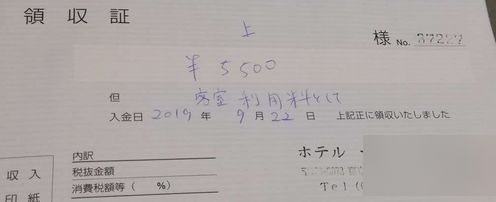 領収証
上 様 No. 37227
¥5500
但 客室利用料として
入金日 2019年 9月22日 上記正に領収いたしました
収入
印紙
内訳
税抜金額
消費税額等(　%)
ホテル・
Tel(